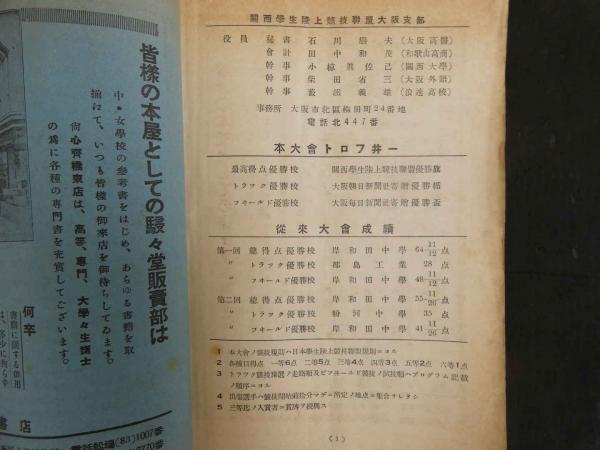 關西學生陸上競技聯盟大阪支部
役員 秘書 石川 夫 (大阪高醫)
會計 田中和茂 (和歌山高商)
幹事 小椋眞佐己 (關西大學)
幹事 柴田省三 (大阪外語)
幹事 義雄 (浪速高校)
事務所 大阪市北區梅田町24番地
電話北447番
本大會トロフ井ー
最高得点優勝校 關西學生陸上競技聯盟優勝旗
トラツク優勝校 大阪朝日新聞社寄贈優勝楯
フ井ールド優勝校 大阪毎日新聞社寄贈優勝盃
從來大會成績
第一回 總得点優勝校 岸和田中學 64 11/12 点
〃 トラツク優勝校 都島工業 28 点
〃 フ井ールド優勝校 岸和田中學 48 11/12 点
第二回 總得点優勝校 岸和田中學 55 11/26 点
〃 トラツク優勝校 粉河中學 35 点
〃 フ井ールド優勝校 岸和田中學 41 11/26 点
1 本大會ノ競技規則ハ日本學生陸上競技聯盟規則ニヨル
2 各種目得点 一等6点 二等5点 三等4点 四等3点 五等2点 六等1点
3 トラツク競技豫選ノ走路順及ビフ井ールド競技ノ試技順ハプログラム記載
ノ順序ニヨル
4 出場選手ハ競技開始前拾分マデニ所定ノ地点ニ集合サレタシ
5 三等迄ノ入賞者ニ賞牌ヲ授與ス
(1)
皆樣の本屋としての駸々堂販賣部は
中・女學校の參考書をはじめ、あらゆる書籍を取
揃へて、いつも皆樣の御來店を御待ちしてゐます。
尙心齊橋東店は、高等、專門、大學々生諸士
の爲に各種の專門書を充實してございます。
何卒
書籍に關する御用
は、多少に拘らず
書店
電話船場(83)1007番
2770番